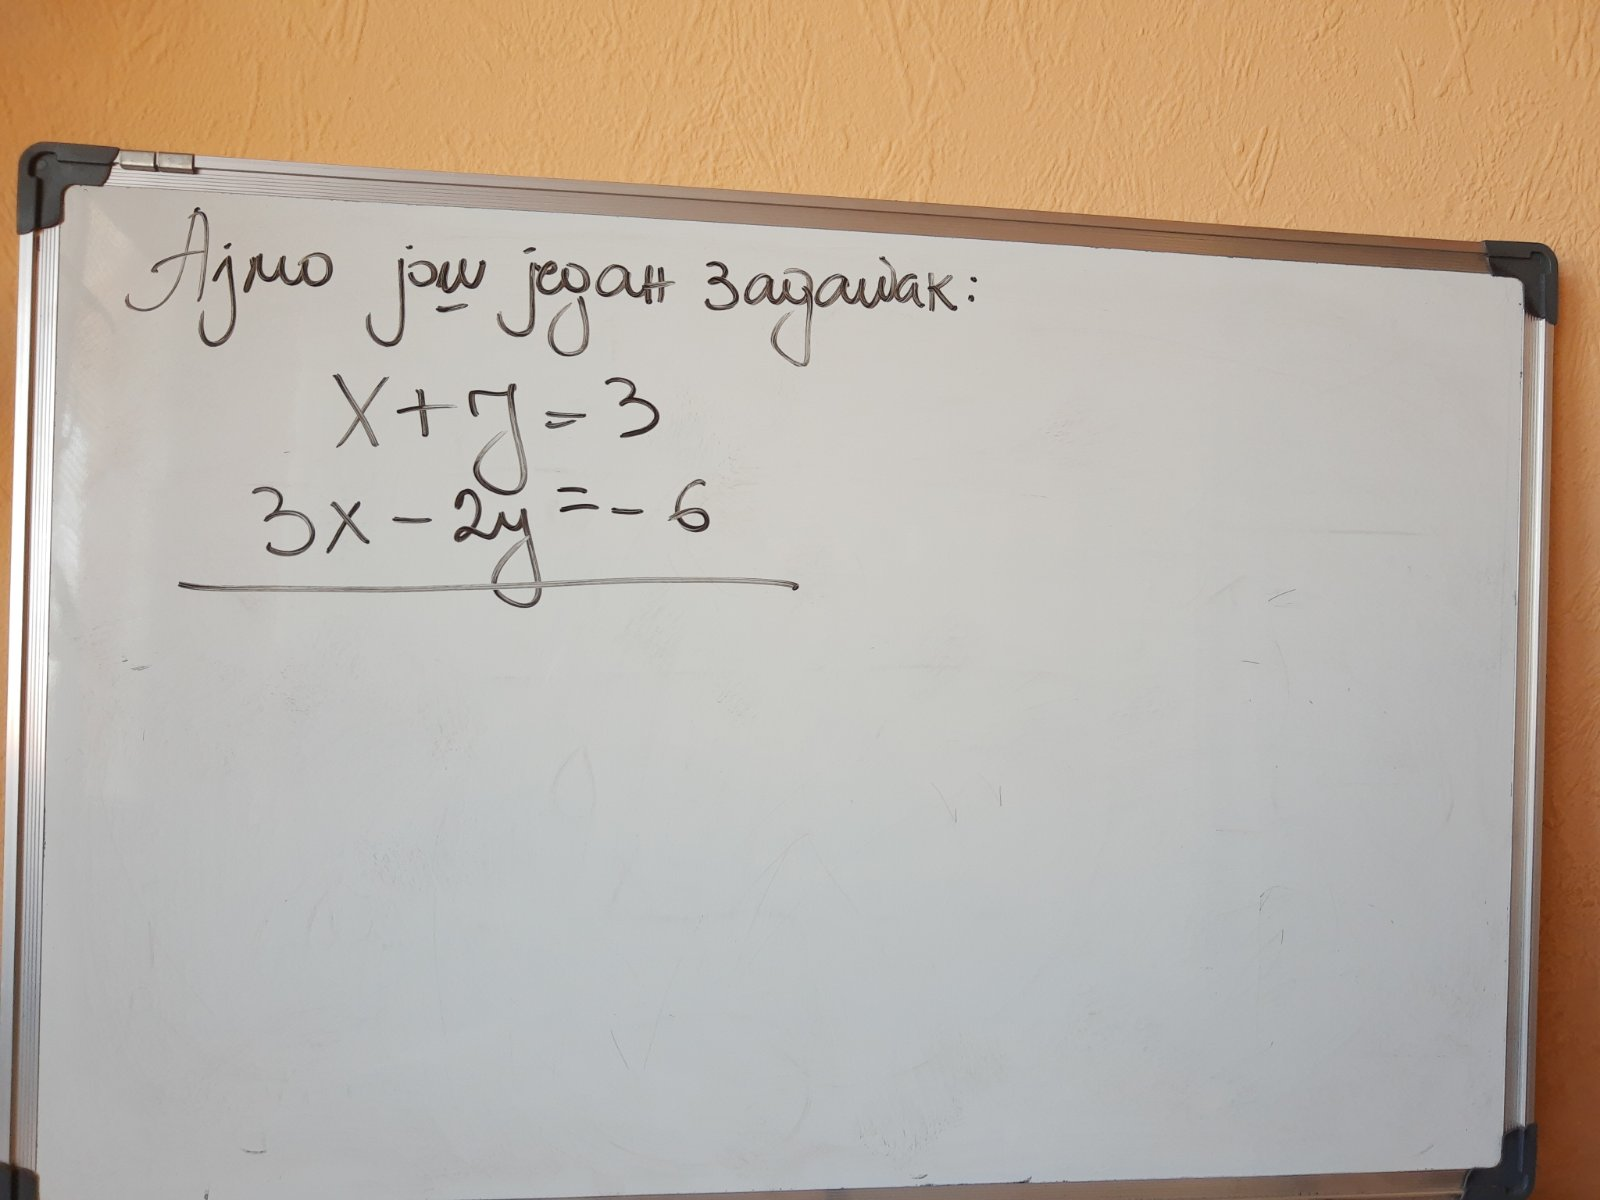 Ајмо још један задатак:
x + y = 3
3x - 2y = - 6